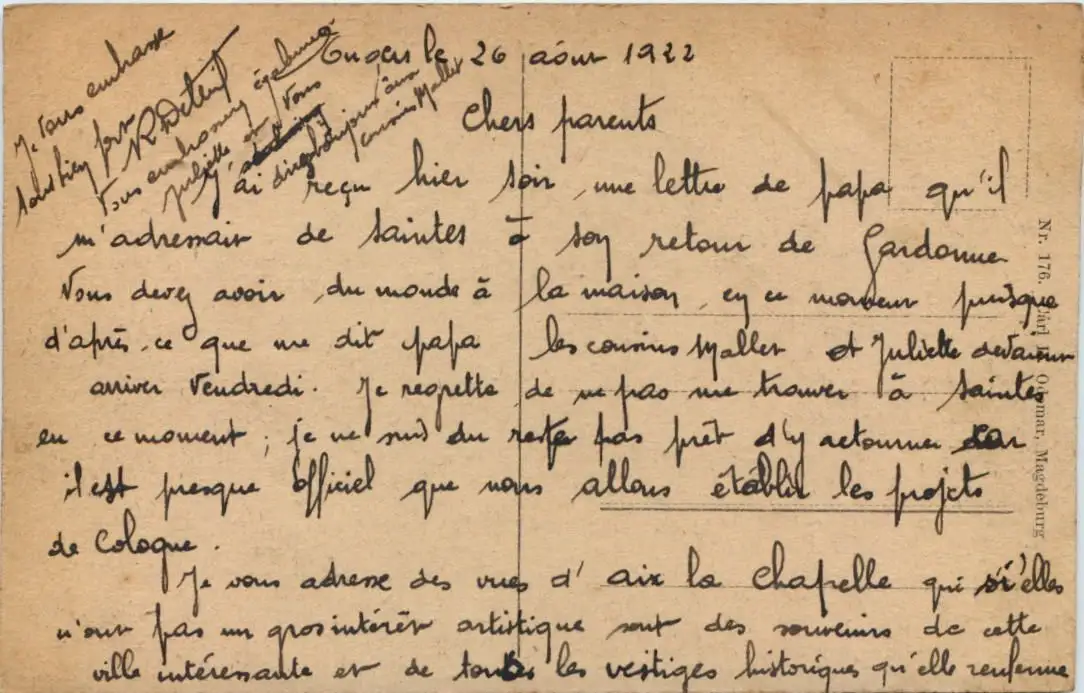 le 26 août 1922
Chers parents
J'ai reçu hier soir une lettre de papa qu'il
m'adressait de Saintes à son retour de Gardonne
Vous devez avoir du monde à la maison en ce moment puisque
d'après ce que me dit papa les cousins Mallet et Juliette devaient
arriver Vendredi. Je regrette de ne pas me trouver à Saintes
en ce moment ; je ne suis du reste pas prêt d'y retourner car
il est presque officiel que nous allons établir les projets
de Cologne.
Je vous adresse des vues d'aix la Chapelle qui si elles
n'ont pas un gros intérêt artistique sont des souvenirs de cette
ville intéressante et de toutes les vestiges historiques qu'elle renferme
Je vous embrasse
tous bien fort
Vous embrasserez également
Juliette et vous
direz bonjour aux
cousins Mallet
Nr. 176. Magdeburg